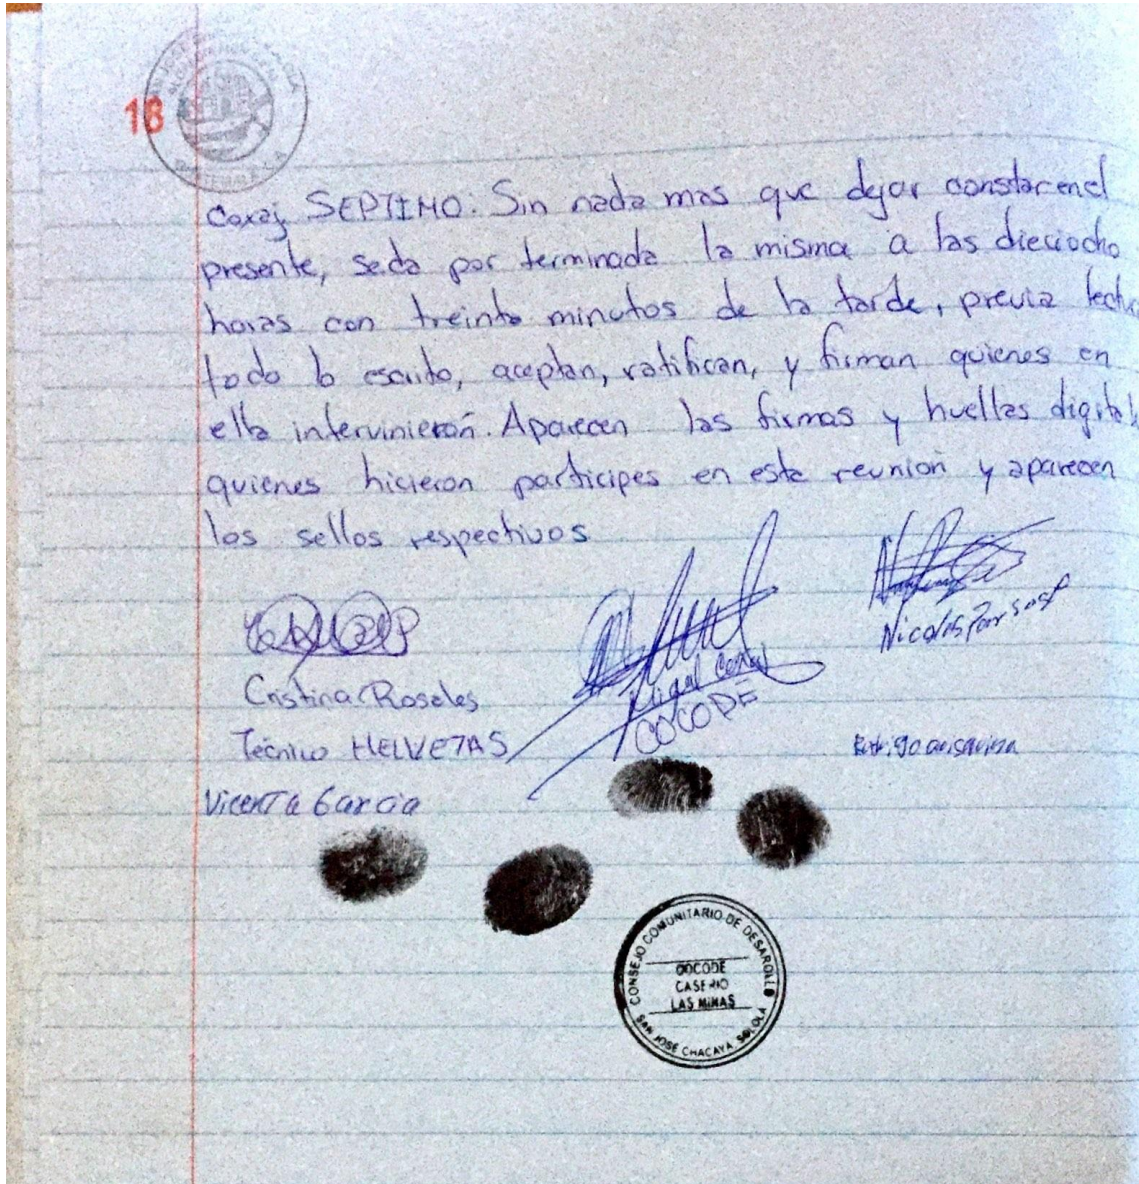 18
Coxaj SEPTIMO: Sin nada mas que dejar constar en el
presente, se da por terminada la misma a las dieciocho
horas con treinta minutos de la tarde, previa lectu
todo lo escrito, aceptan, ratifican, y firman quienes en
ella intervinieron. Aparecen las firmas y huellas digital
quienes hicieron participes en esta reunion y aparecen
los sellos respectivos
Nicolas
Cristina Rosales
Miguel
COCODE
Técnico HELVETAS
Vicenta Garcia
CONSEJO COMUNITARIO DE DESAROLLO
COCODE
CASERIO
LAS MINAS
SAN JOSE CHACAYA, SOLOLA